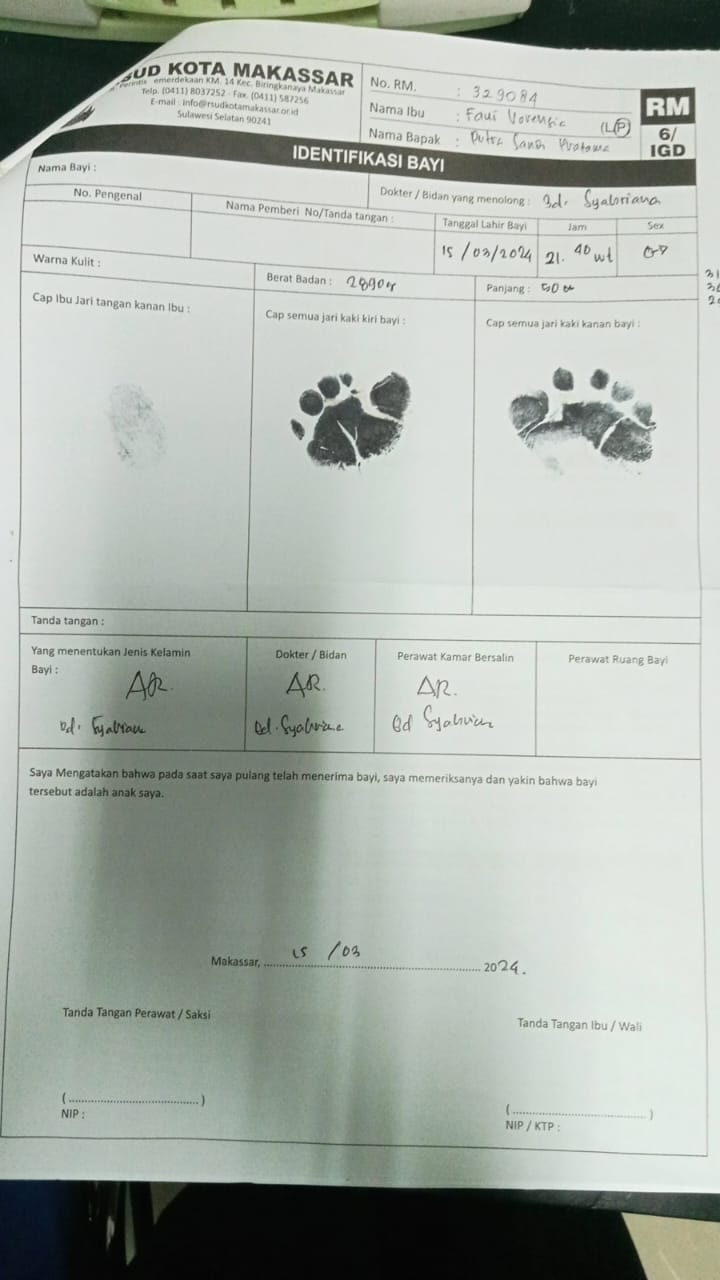 SUD KOTA MAKASSAR
Perintis emerdekaan KM. 14 Kec. Biringkanaya Makassar
Telp. (0411) 8037252 - Fax. (0411) 587256
E-mail : info@rsudkotamakassar.or.id
Sulawesi Selatan 90241
No. RM. : 329084
Nama Ibu : Faui
(L/P)
Nama Bapak : Putra Sandi Pratama
RM
6/
IGD
IDENTIFIKASI BAYI
Nama Bayi :
Dokter / Bidan yang menolong : Bd. Syabriana
No. Pengenal
Nama Pemberi No/Tanda tangan :
Tanggal Lahir Bayi
Jam
Sex
15 /03/2024
21. 40 wt
Warna Kulit :
Berat Badan : 2890 gr
Panjang : 50 cm
Cap Ibu Jari tangan kanan Ibu :
Cap semua jari kaki kiri bayi :
Cap semua jari kaki kanan bayi :
Tanda tangan :
Yang menentukan Jenis Kelamin
Bayi :
Dokter / Bidan
Perawat Kamar Bersalin
Perawat Ruang Bayi
AR.
AR.
AR.
Bd. Syabriana
Bd. Syabriana
Bd Syabriana
Saya Mengatakan bahwa pada saat saya pulang telah menerima bayi, saya memeriksanya dan yakin bahwa bayi
tersebut adalah anak saya.
Makassar, 15 /03 2024.
Tanda Tangan Perawat / Saksi
Tanda Tangan Ibu / Wali
(....................................)
(....................................)
NIP :
NIP / KTP :